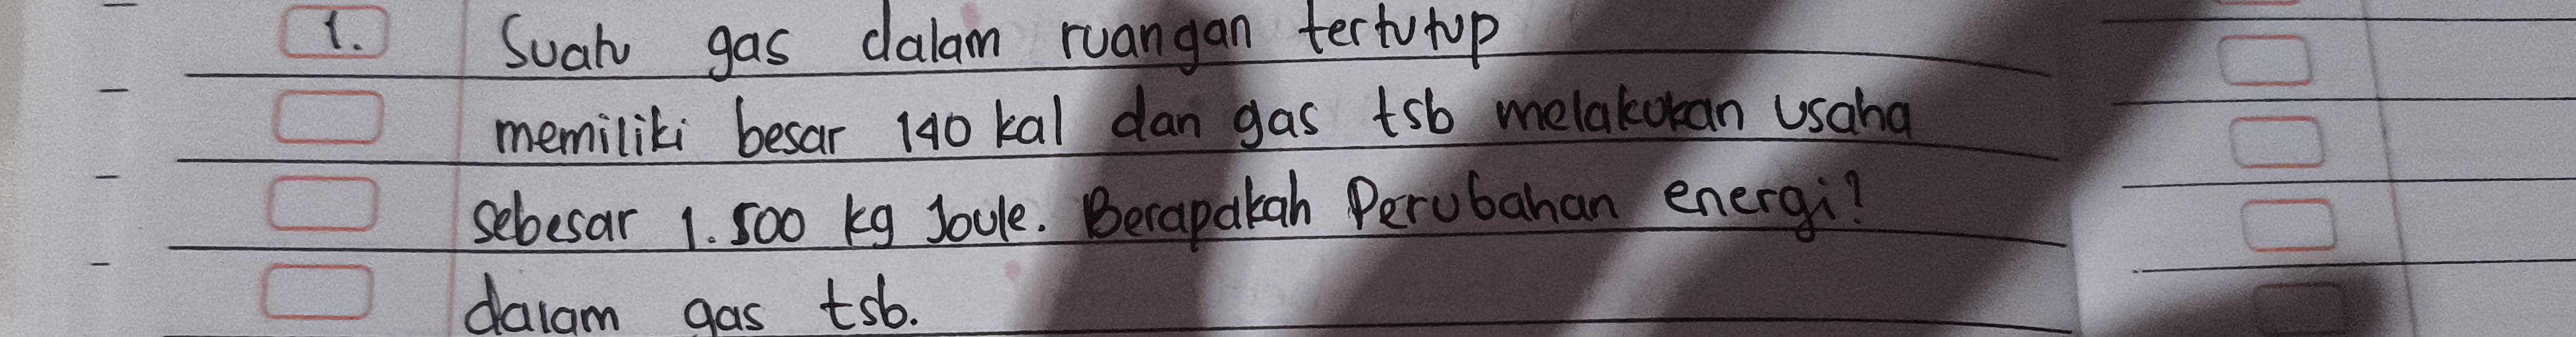 1. Suatu gas dalam ruangan tertutup
memiliki besar 140 kal dan gas tsb melakukan usaha
sebesar 1.500 kg Joule. Berapakah Perubahan energi?
dalam gas tsb.